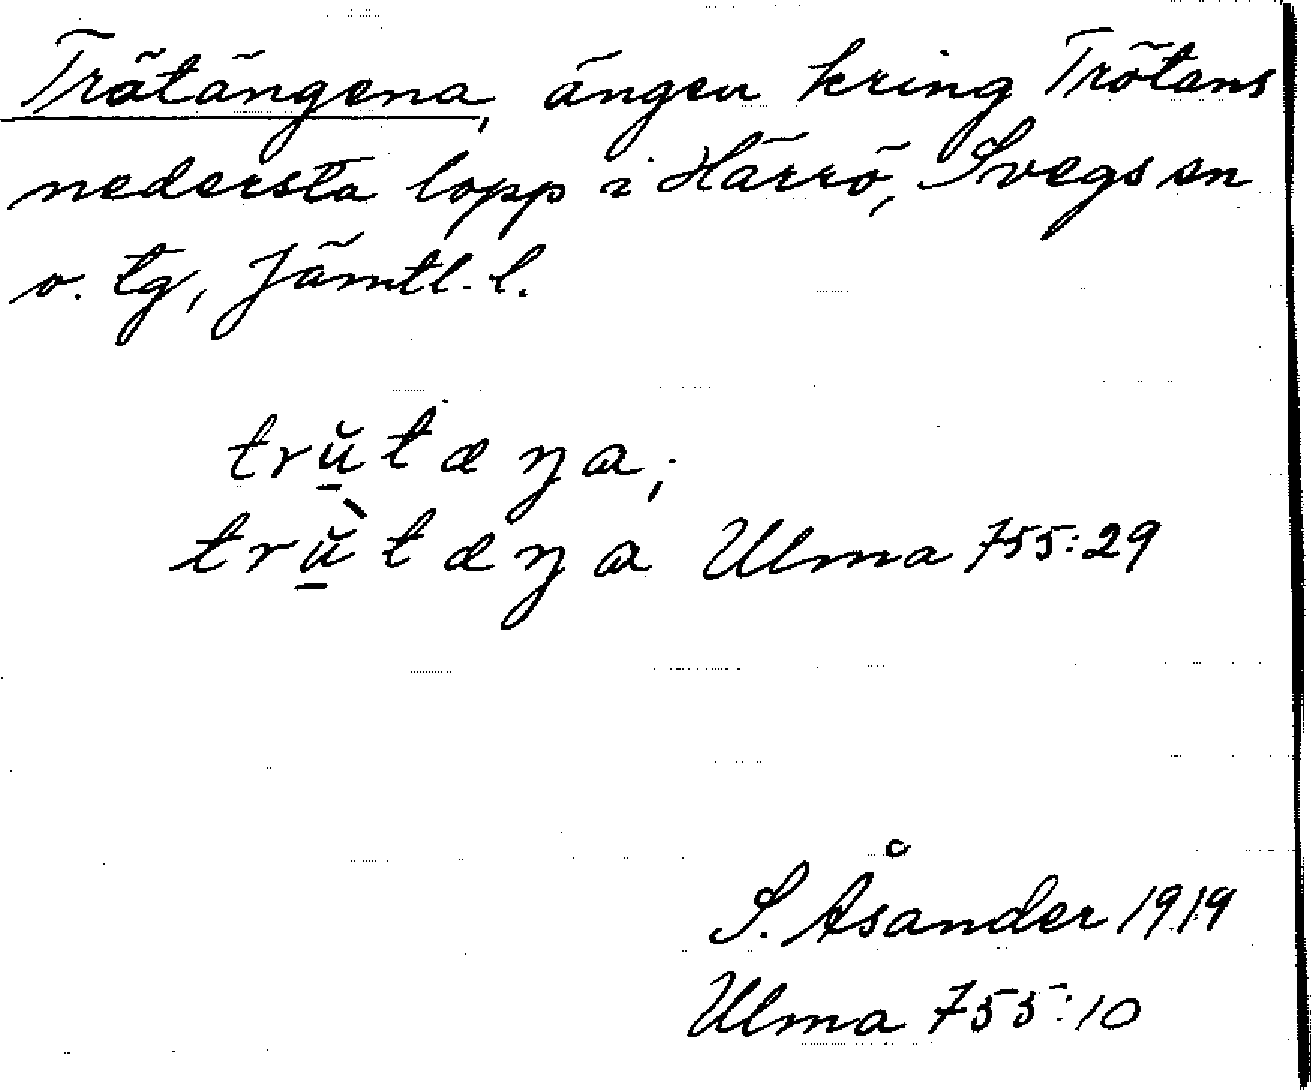 Trötängena, ängen kring Trötans
nedersta lopp i Härrö, Svegs sn
o. tg, Jämtl. l.
trŭ̲tæŋa;
trŭ̲̀tæŋa Ulma 755:29
S. Åsander 1919
Ulma 755:10